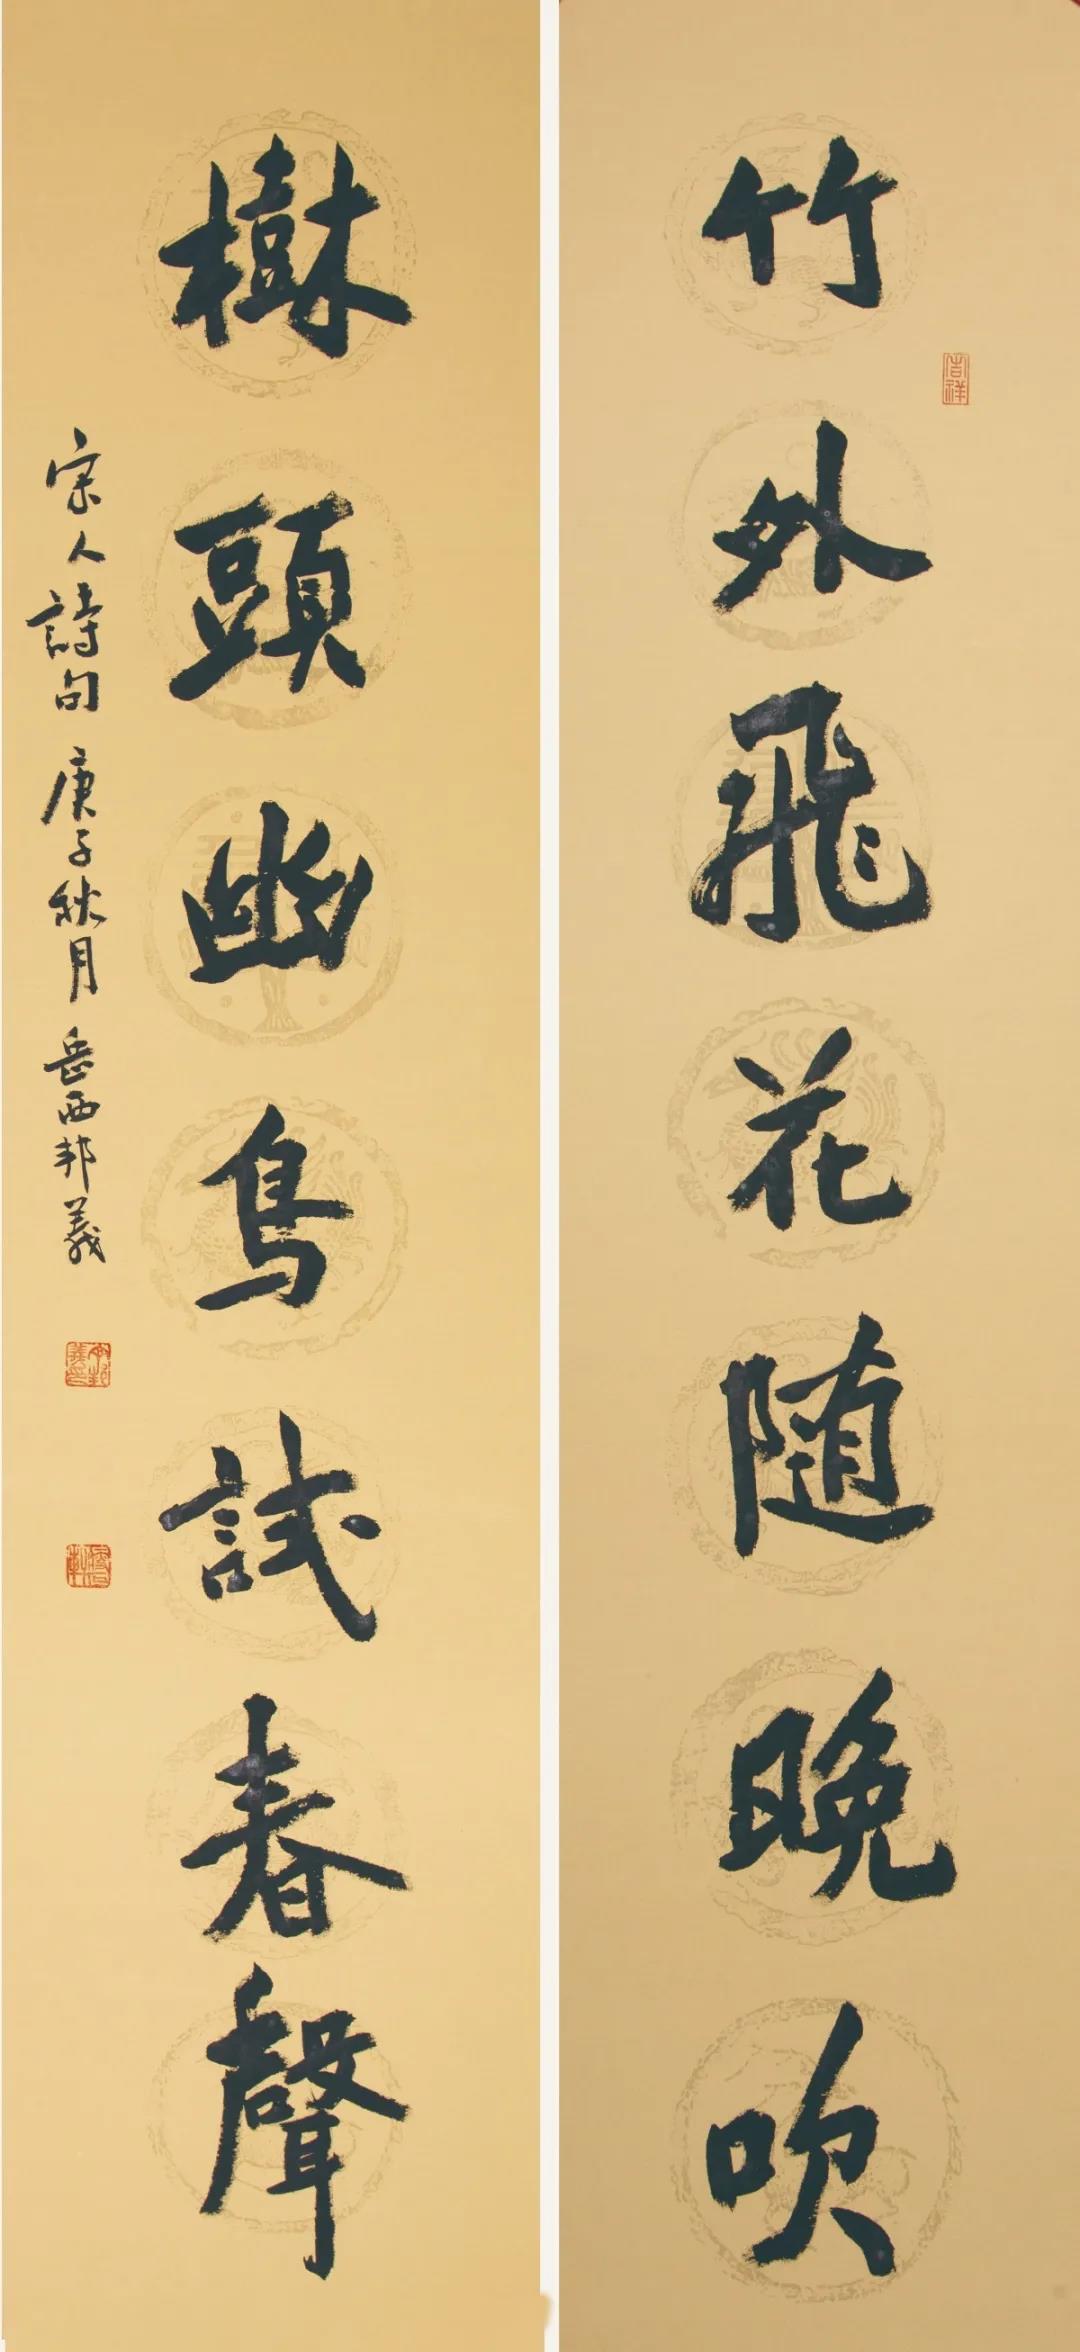 竹外飛花随晚吹
吉祥
樹頭幽鳥試春聲
宋人詩句 庚子秋月 岳西邦義